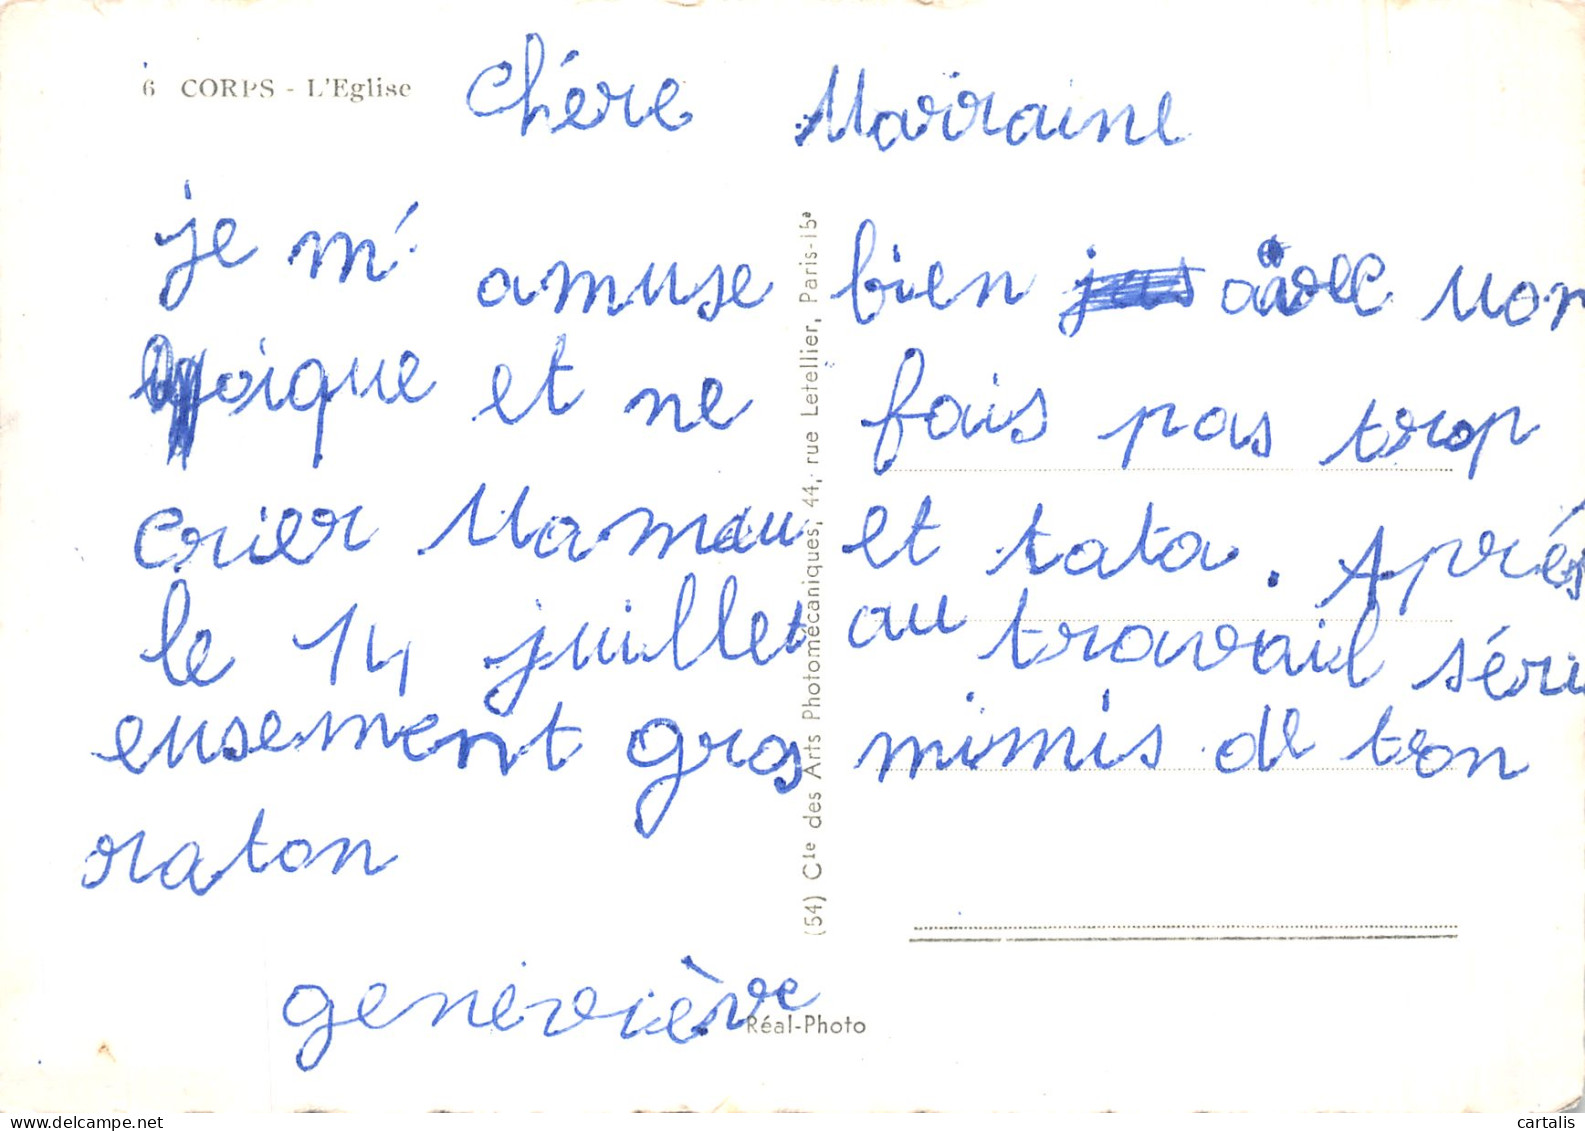 6 CORPS - L'Eglise
Chére Marraine
je m' amuse bien avec Mon
ique et ne fais pas trop
crier Maman et tata. Aprés
le 14 juillet au travail séri
eusement gros mimis de ton
raton
geneviève
(54) Cie des Arts Photomécaniques, 44, rue Letellier, Paris-15e
Réal-Photo
cartalis